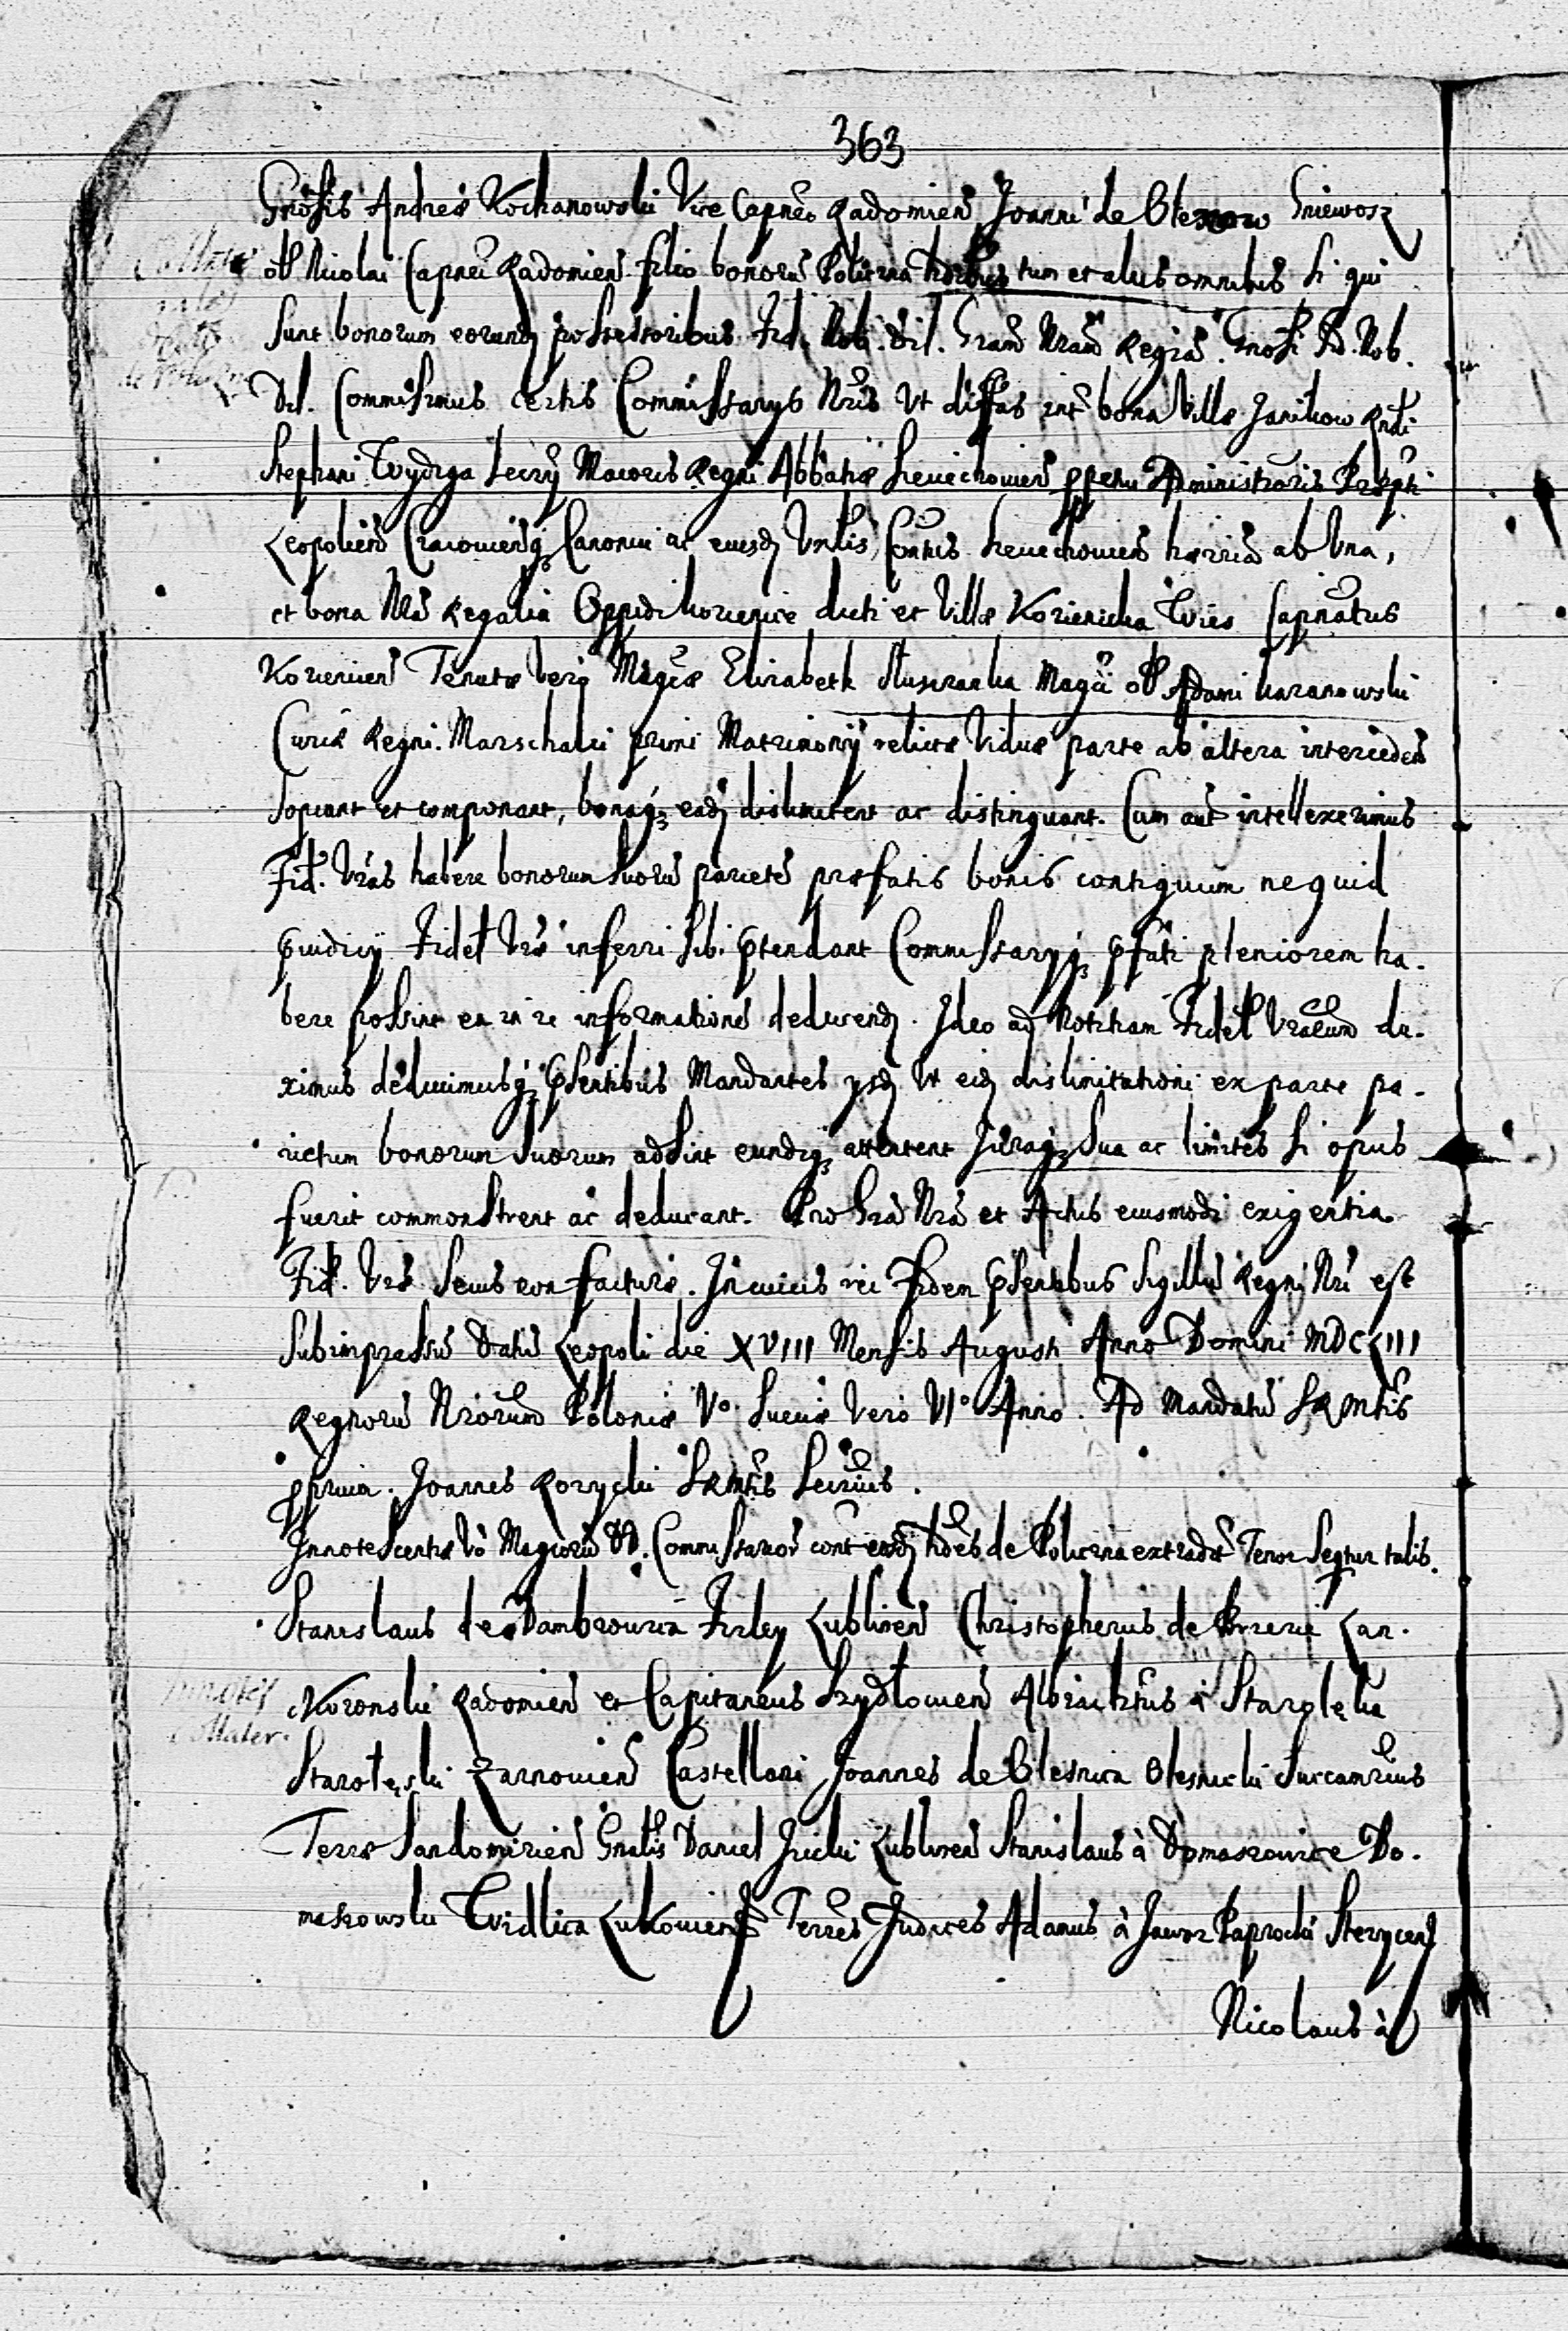 363
Gnosis Andreæ Kochanowski Vice Capneo Radomien Joanni de Olexow Gniewosz
olî Nicolai Capnei Radomien filio bonorũ Policzna hæredibus tum et aliis omnibus si qui
sunt bonorum eorundẽ possessoribus Fid. Nob. dil. Gram Nram Regiã. Gnosi Fid. Nob.
Dil. Commisimus certis Commissarys Nris Vt diffas intr bona Villæ Janikow Rndi
Stephani Wydzga Secry Maioris Regni Abbatiæ Sieciechowien ppetui Administratoris Præpti
Leopolien Cracovienq Canonici ac eiusdẽ Vnlis Contus Sieciechowien hæreditr ab Vna,
et bona Nra Regalia Oppidi Kozienice dicti et Villæ Kozienicka Wies Capneatus
Kozienicen Tenutæ vero Magcæ Elizabeth Sluszczanka Magci olî Adami Kazanowski
Curiæ Regni Marschalci primi Matrimonij relictæ Viduæ parte ab altera interceden
sopiant et componant, bonaq3 eadẽ dislimitent ac distinguant. Cum aut intellexerimus
Fid. Vras habere bonorum suorũ parietẽ præfatis bonis contiguum ne quid
pjudicij Fidel Vræ inferri sibi ptendant Commissaryq3 pfati pleniorem ha-
bere possint ea in re informationẽ deducendẽ. Ideo ad Notitiam Fidel Vrarum du-
ximus deducimusq3 psentibus Mandantes ysdẽ Vt eidẽ dislimitationi ex parte pa-
rietum bonorum suorum adsint eundẽq3 attentent Juraq3 sua ac limites si opus
fuerit commonstrent ac deducant. Pro Gra Nra et Actus eiusmodi exigentia
Fid. Vræ secus non facturæ. In cuius rei Fidem psentibus Sigillũ Regni Nri est
subimpressũ Datũ Leopoli die XVIII Mensis Augusti Anno Domini MDCLIII
Regnorũ Nrorum Poloniæ Vo. Sueciæ Vero VIo Anno. Ad Mandatũ SRMtis
ppriũ. Joannes Rozycki SRMtis Secrius.
Innotescentiæ Vo Magcorũ DD. Commissarior cont eosdẽ hdes de Policzna extradit Tenor Seqtur talis.
Stanislaus de Dambrowica Firley Lublinen Christopherus de Brzezie Lan-
ckoronski Radomien et Capitaneus Szydlovien Albrachtus à Starolęka
Starolęski Zarnovien Castellani Joannes de Olesnica Olesnicki Succamrius
Terræ Sandomirien Gnalis Daniel Jricki Lublinen Stanislaus à Domaszowice Do-
maszowski Widlica Lukovien Terres Judices Adamus à Jawor Paprocki Stezycen
Nicolaus à